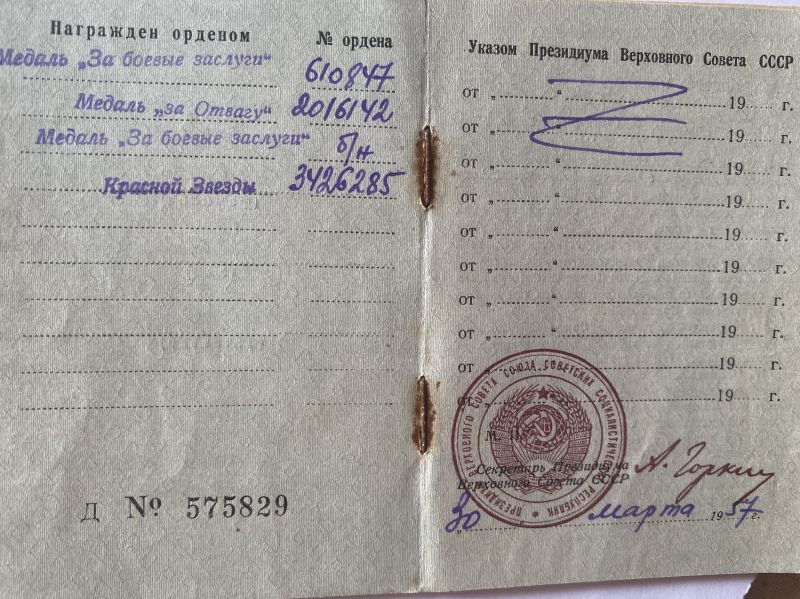 Награжден орденом № ордена
Медаль „За боевые заслуги“ 610847
Медаль „за Отвагу“ 2016142
Медаль „За боевые заслуги“ б/н
Красной Звезды 3426285
Д № 575829
Указом Президиума Верховного Совета СССР
от „ “ 19 г.
от „ “ 19 г.
от „ “ 19 г.
от „ “ 19 г.
от „ “ 19 г.
от „ “ 19 г.
от „ “ 19 г.
от „ “ 19 г.
от „ “ 19 г.
от „ “ 19 г.
М. П.
ПРЕЗИДИУМ ВЕРХОВНОГО СОВЕТА СОЮЗА СОВЕТСКИХ СОЦИАЛИСТИЧЕСКИХ РЕСПУБЛИК
Секретарь Президиума
Верховного Совета СССР
А. Горкин
„30“ марта 1957 г.